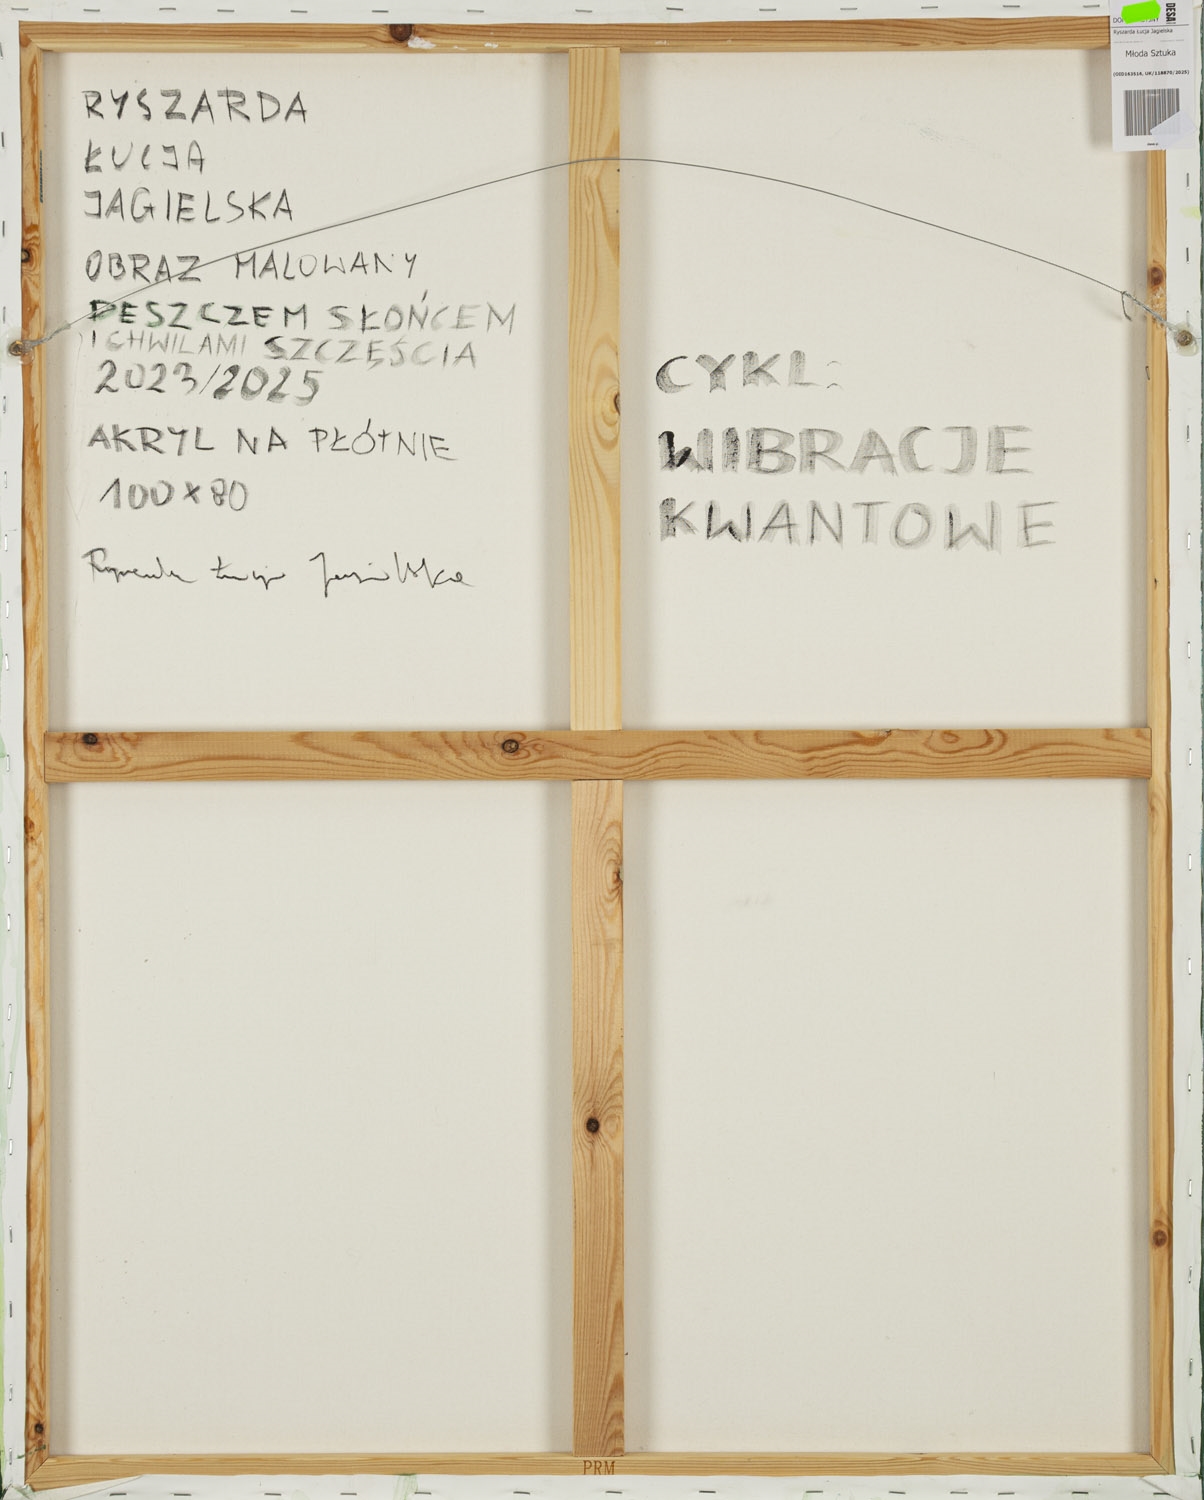 RYSZARDA
ŁUCJA
JAGIELSKA
OBRAZ MALOWANY
DESZCZEM SŁOŃCEM
I CHWILAMI SZCZĘŚCIA
2023/2025
AKRYL NA PŁÓTNIE
100 x 80
Ryszarda Łucja Jagielska
CYKL:
WIBRACJE
KWANTOWE
DESA
Ryszarda Łucja Jagielska
Młoda Sztuka
PRM